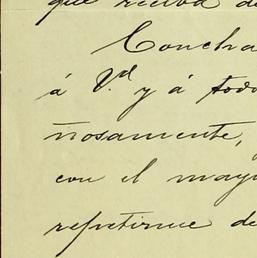 que reciva de
Concha
á V.d y á todo
ñosamente,
con el mayo
repetirme de